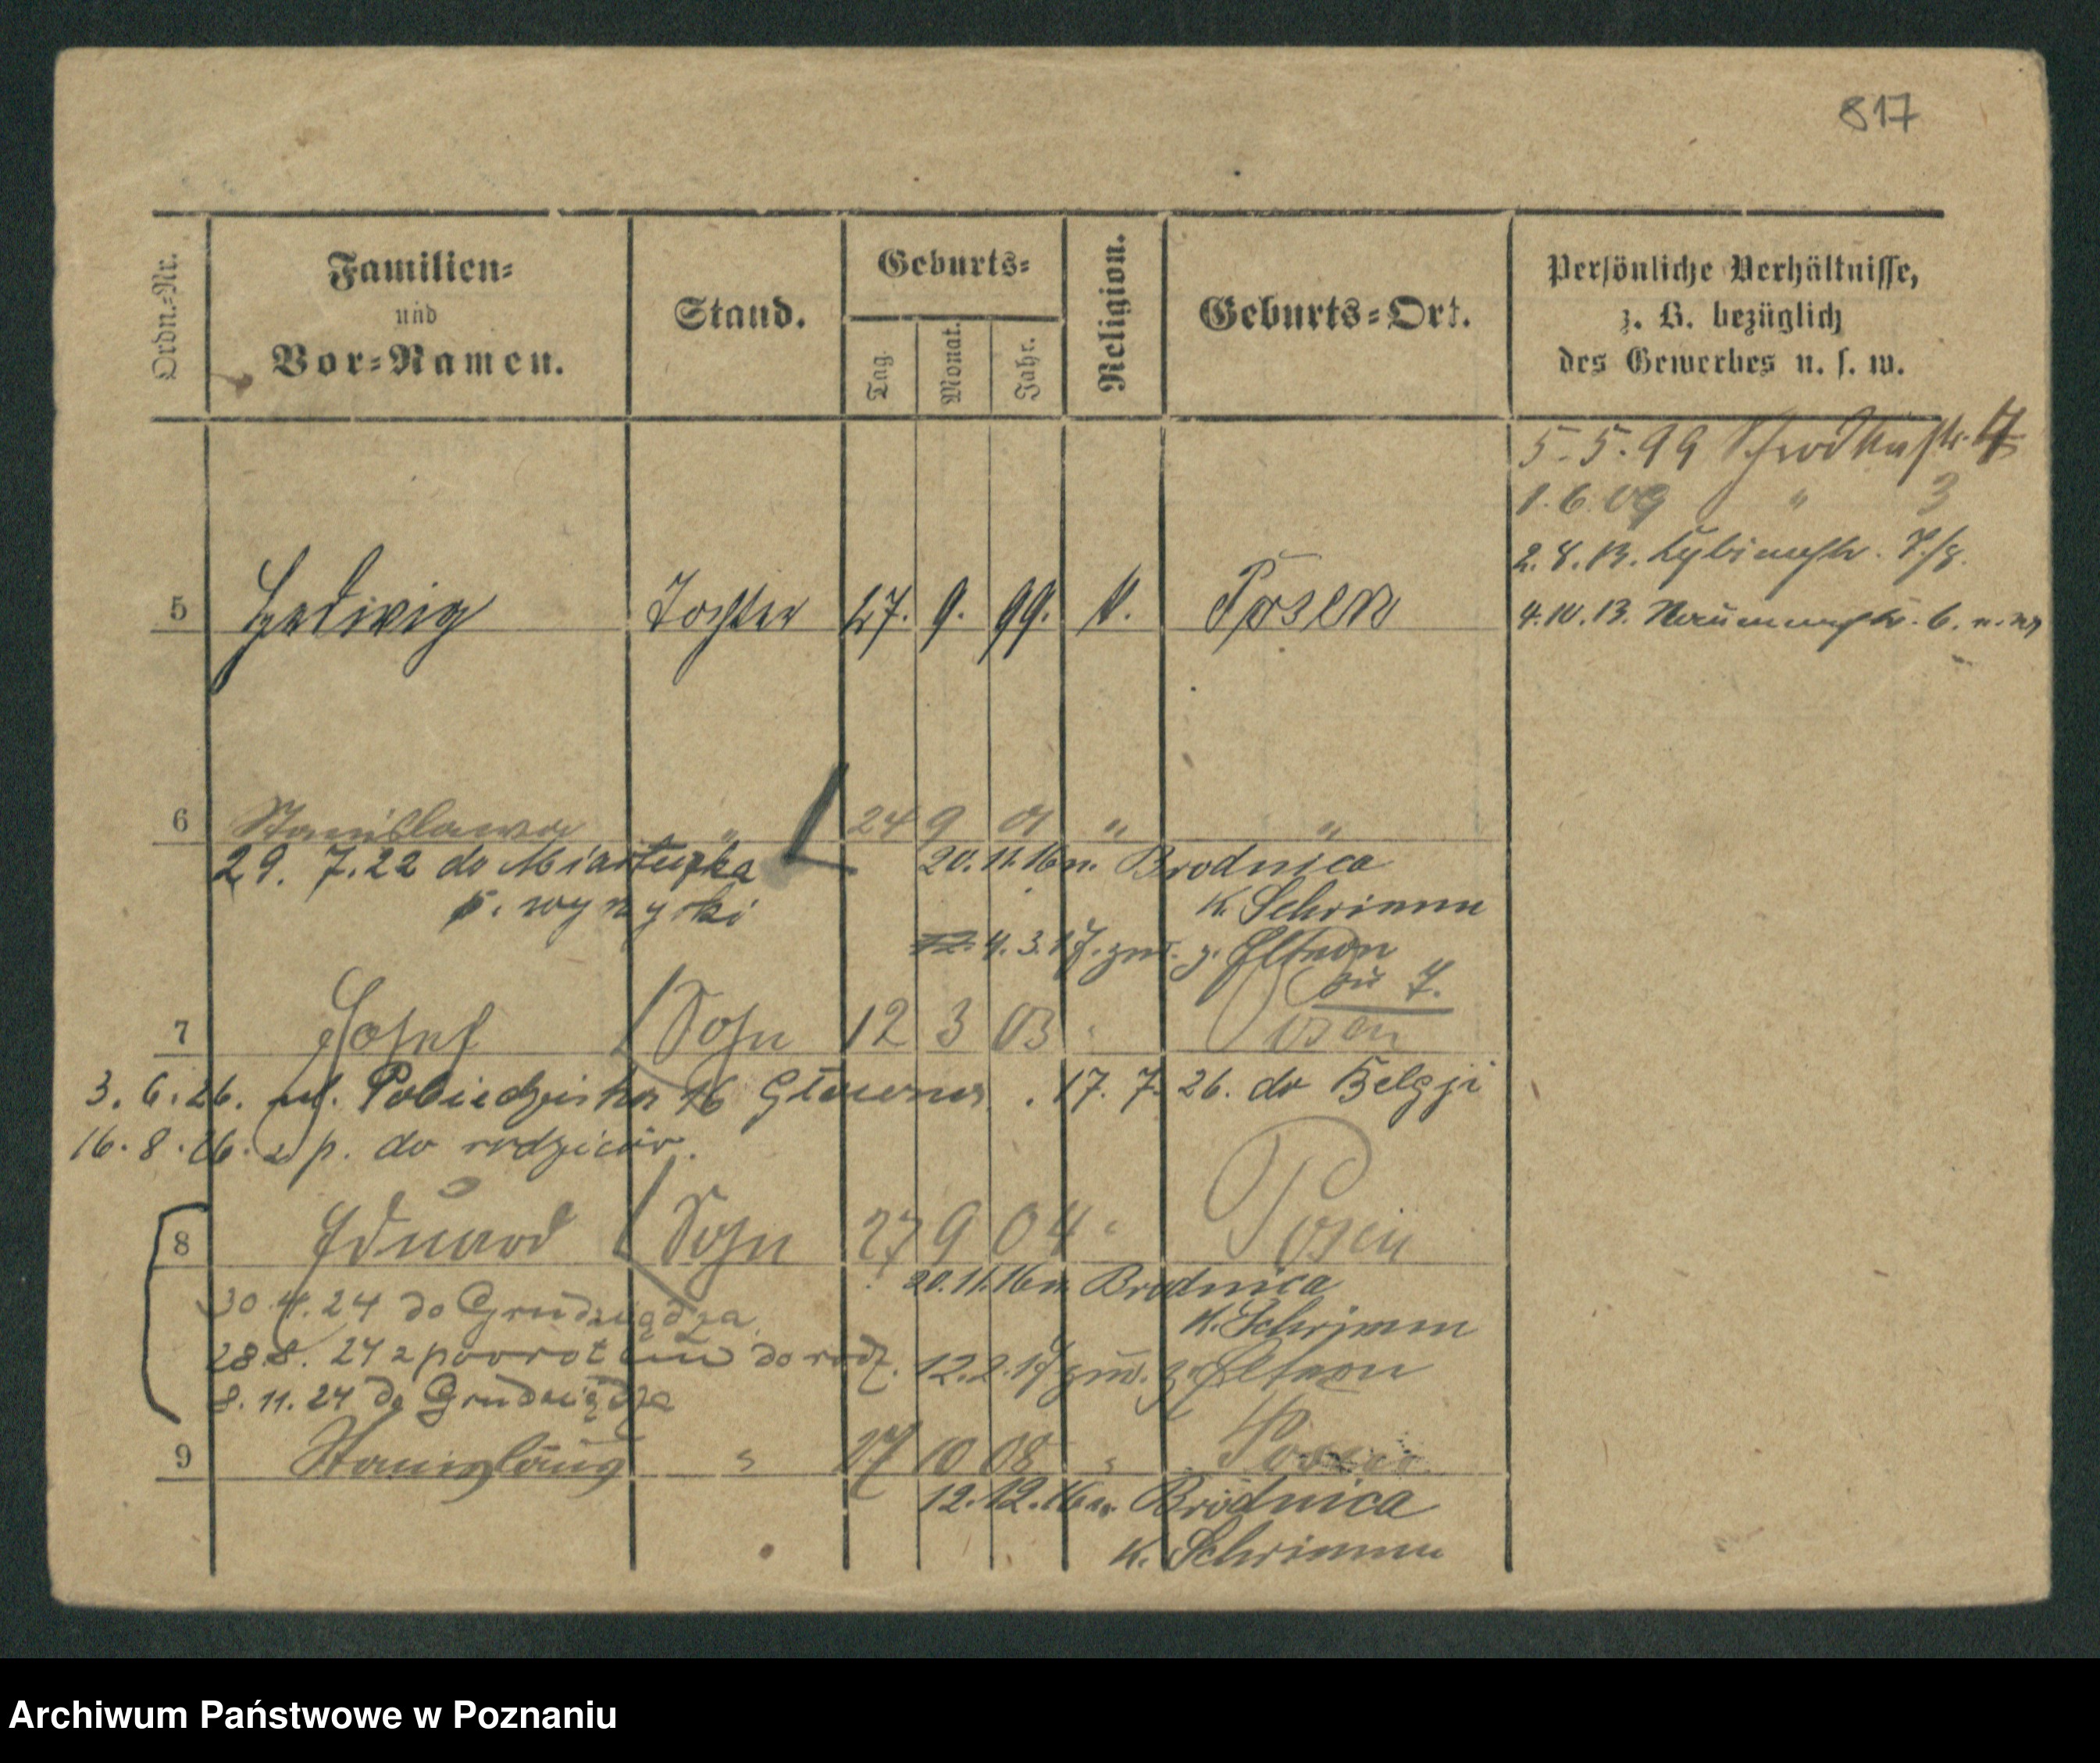 817
Ordn.-Nr.
Familien-
und
Vor-Namen.
Stand.
Geburts-
Tag.
Monat.
Jahr.
Religion.
Geburts-Ort.
Persönliche Verhältnisse,
z. B. bezüglich
des Gewerbes u. s. w.
5.5.99 Schrodkastr. 4
1.6.09 " 3
2.8.13. Lybinastr. 7/8.
4.10.13. Naumannstr. 6.
5 Hedwig Tochter 27. 9. 99. k. Posen
6 Stanislawa " 24 9 01 " "
29. 7.22 do Miast
20.11.16 n. Brodnica
K. Schrimm
4.3.17. zur. z. Eltern
zu 7.
7 Josef Sohn 12 3 03 Posen
3.6.26. ul. Pobiedziska 16 Główna. 17.7.26. do Belgji
16.8.26. z p. do rodziców.
8 Eduard Sohn 27 9 04 " Posen
20.11.16 n. Brodnica
K. Schrimm
30.4.24 do Grudziądza
28.8.24 z powrotem do rodz.
12.2.17 zur. z. Eltern
8.11.24 do Grudziądza
9 Stanislaus " 27 10 08 " Posen
12.12.16 n. Brodnica
K. Schrimm
Archiwum Państwowe w Poznaniu